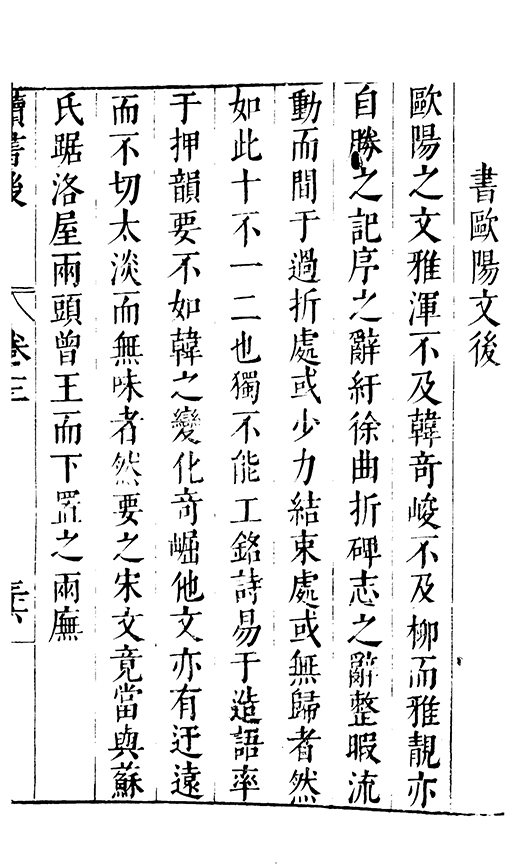 書歐陽文後
歐陽之文雅渾不及韓奇峻不及柳而雅靚亦
自勝之記序之辭紆徐曲折碑志之辭整暇流
動而間于過折處或少力結束處或無歸者然
如此十不一二也獨不能工銘詩易于造語率
于押韻要不如韓之變化奇崛他文亦有迂遠
而不切太淡而無味者然要之宋文竟當與蘇
氏踞洛屋兩頭曾王而下置之兩廡
讀書後
卷三